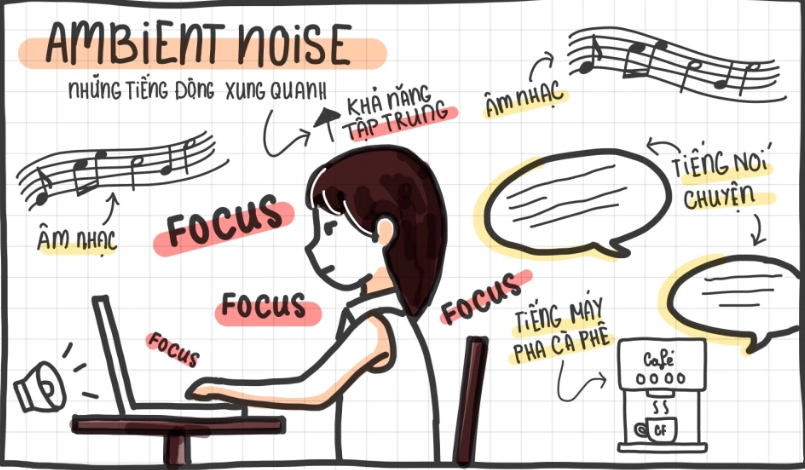 AMBIENT NOISE
NHỮNG TIẾNG ĐỘNG XUNG QUANH
KHẢ NĂNG
TẬP TRUNG
ÂM NHẠC
TIẾNG NÓI
CHUYỆN
ÂM NHẠC
FOCUS
FOCUS
FOCUS
FOCUS
TIẾNG MÁY
PHA CÀ PHÊ
Café
CF